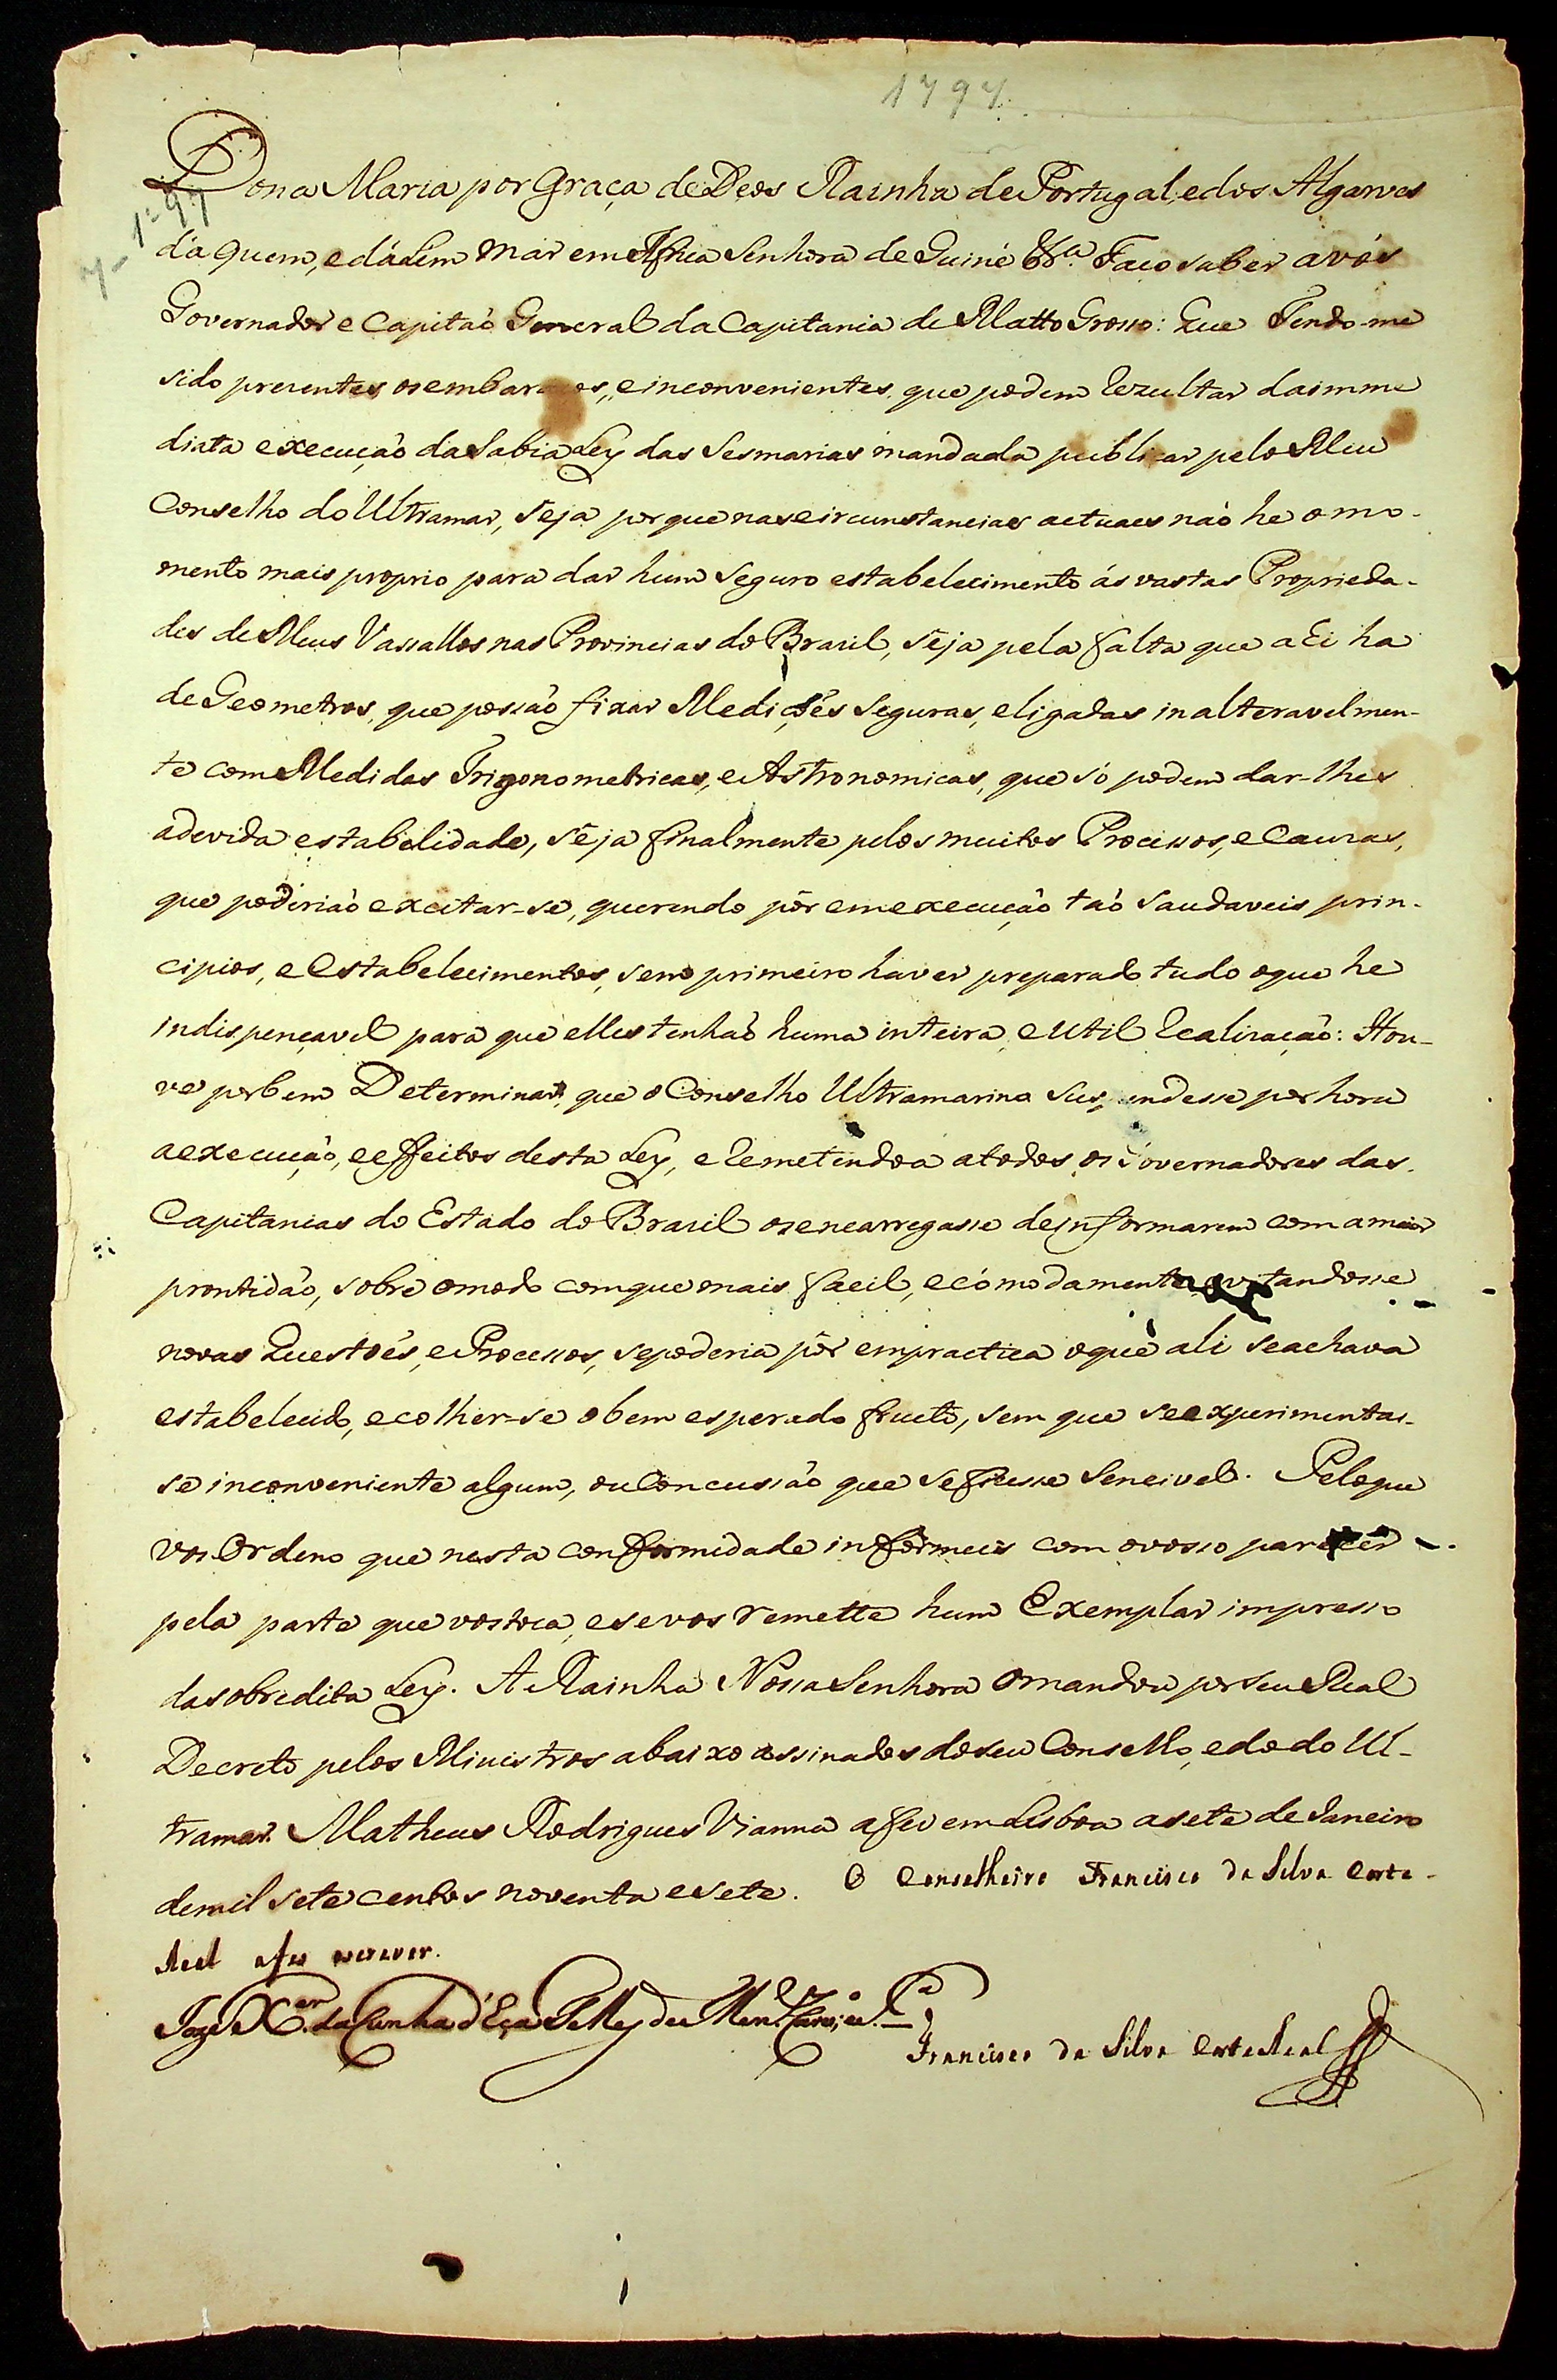 1797
7-1º-97
Dona Maria por Graça de Deos Rainha de Portugal, edos Algarves
dáquem, e dálem Mar em Africa Senhora de Guiné &ª. Faço saber avós
Governador e Capitaõ General da Capitania de Matto Grosso: Que Tendo-me
sido presentes os embaraços, e inconvenientes, que podem rezultar daimme
diata execuçaõ da Sabia Ley das Sesmarias mandada publicar pelo Meu
Conselho do Ultramar, seja por que nas circunstancias actuaes naõ he o mo-
mento mais proprio para dar hum seguro estabelecimento ás vastas Proprieda-
des de Meus Vassallos nas Provincias do Brasil, seja pela falta que ali ha
de Geometros, que possaõ fixar Mediçoẽs seguras, eligadas inalteravelmen-
te com Medidas Trigonometricas, e Astronomicas, que só podem dar-lhes
adevida estabelidade, seja finalmente pelos muitos Processos, e Causas,
que poderiaõ excitar-se, querendo pôr em execuçaõ taõ saudaveis prin-
cipios, e Estabelecimentos, sem primeiro haver preparado tudo oque he
indispençavel para que elles tenhaõ huma inteira, e util realisaçaõ: Hou-
ve porbem Determinar, que o Conselho Ultramarino suspendesse por hora
aexecuçaõ, e effeitos desta Ley, e remetendoa atodos os Governadores das
Capitanias do Estado do Brasil os encarregasse de informarem com a maior
prontidaõ, sobre omodo comque mais facil, e cómodamente, evitandosse
novas Questoẽs, e Processos, sepoderia pôr empractica oque ali seachava
estabelecido, e colher-se obem esperado fructo, sem que seexperimentas-
se inconveniente algum, ou Concussaõ que sefizesse sencivel. Peloque
vos Ordeno que nesta conformidade informeis com ovosso parecer
pela parte que vostoca, esevos remette hum Exemplar impresso
dasobredita Ley. A Rainha Nossa Senhora omandou por seu Real
Decreto pelos Ministros abaixo assinados doseu Conselho, edodo Ul-
tramar. Matheus Rodrigues Vianna afez em Lisboa asete de Janeiro
demil sete centos noventa esete. O Conselheiro Francisco da Silva Corte-
Real afez escrever.
Joze Xer. da Cunha d'Eça Telles de Menezes
Francisco da Silva Corte Real